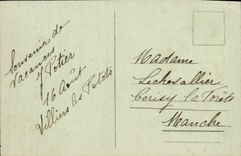 Souvenir de
Vacances
Y Potier
16 Août
Villiers les
Madame
Lechevallier
Cerisy la Forêt
Manche